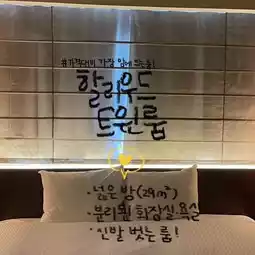 #가격대비 가장 맘에 드는 룸!
할리우드
트윈룸
· 넓은 방(29m²)
· 분리된 화장실·욕실
· 신발 벗는 룸!